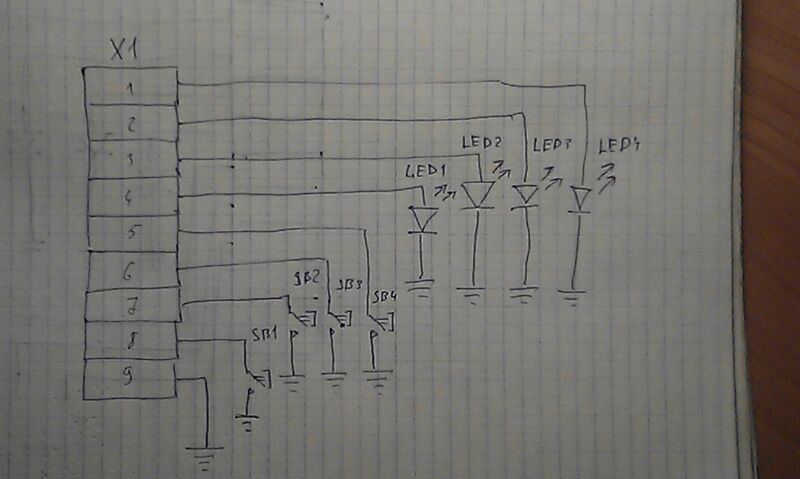 X1
1
2
3
4
5
6
7
8
9
LED1
LED2
LED3
LED4
SB1
SB2
SB3
SB4